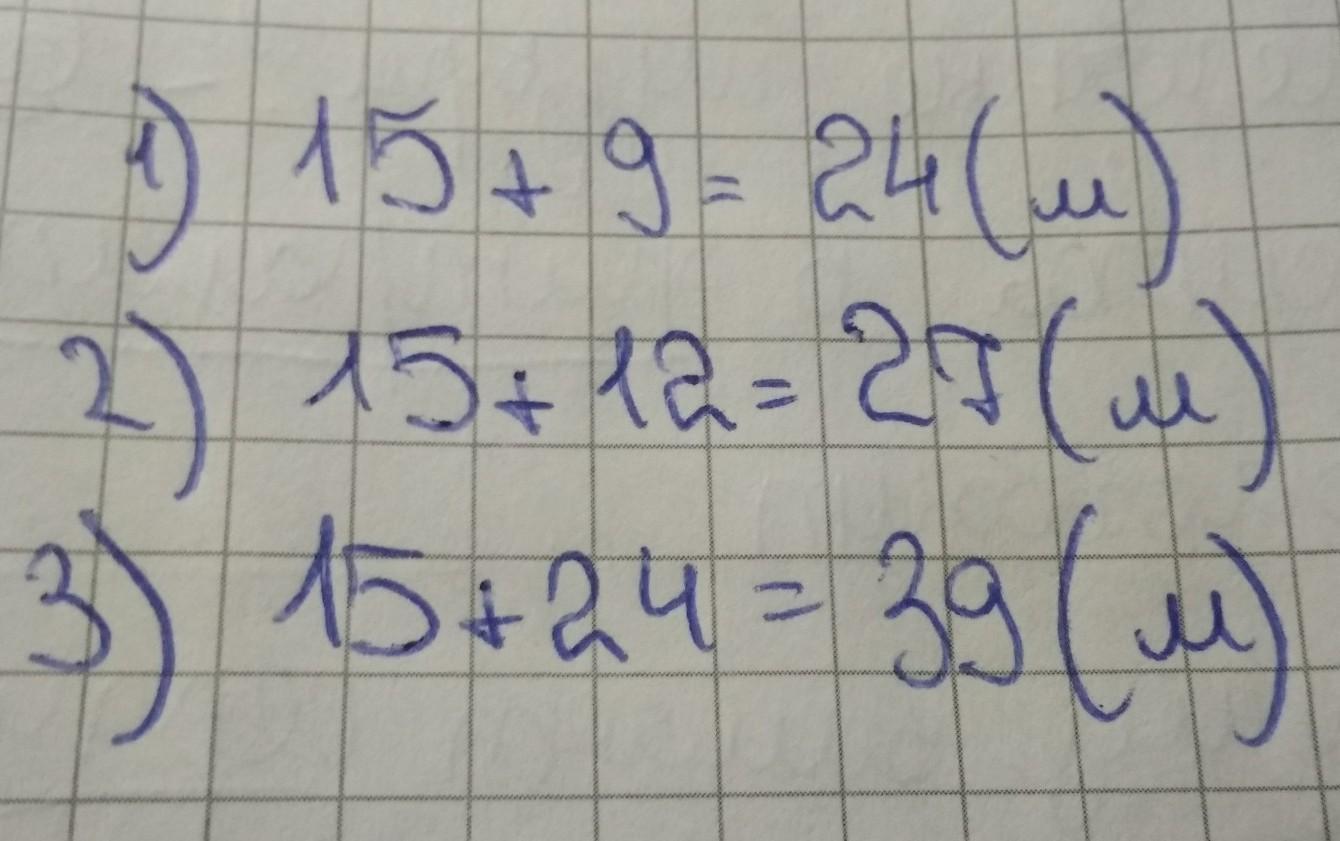 1) 15 + 9 = 24 (м)
2) 15 + 12 = 27 (м)
3) 15 + 24 = 39 (м)